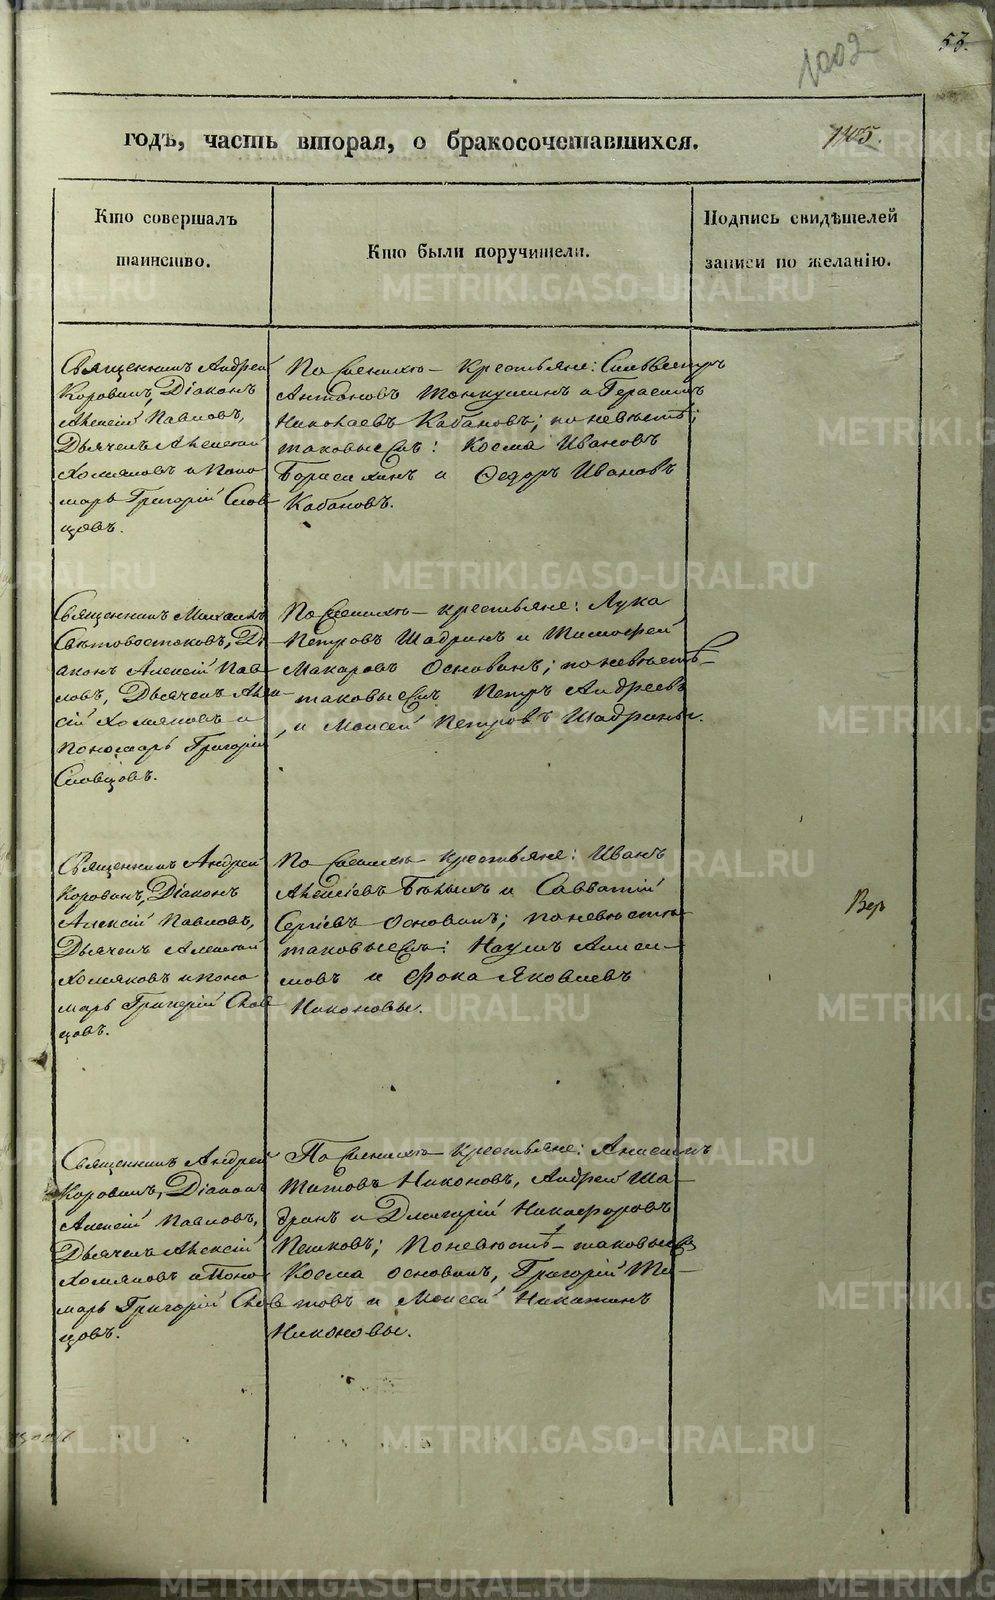 1002
53.
годъ, часть вторая, о бракосочетавшихся.
1105.
Кто совершалъ
таинство.
Кто были поручители.
Подпись свидѣтелей
записи по желанію.
Священникъ Андрей
Коровинъ, Діаконъ
Алексій Павловъ,
Дьячекъ Алексѣй
Хомяковъ и Поно
марь Григорій Слов
цовъ.
По женихѣ – крестьяне: Сильвестръ
Антоновъ и Герасимъ
Николаевъ Кабановъ; по невѣстѣ;
таковыежъ: Косма Ивановъ
и Ѳедоръ Ивановъ
Кабановъ.
Священникъ Михаилъ
Свѣтовостоковъ, Ді
аконъ Алексій Пав
ловъ, Дьячекъ Алек
сій Хомяковъ и
Пономарь Григорій
Словцовъ.
По женихѣ – крестьяне: Лука
Петровъ Шадринъ и Тимофей
Макаровъ Основинъ; по невѣстѣ –
таковыежъ Петръ Андреевъ
и Моисей Петровъ Шадрины.
Священникъ Андрей
Коровинъ, Діаконъ
Алексій Павловъ,
Дьячекъ Алексѣй
Хомяковъ и Поно
марь Григорій Слов
цовъ.
По женихѣ крестьяне: Иванъ
Алексіевъ Бѣлыхъ и Савватій
Сергіевъ Основинъ; по невѣстѣ
таковыежъ: Наумъ Аниси–
мовъ и Фока Яковлевъ
Никоновы.
Вер
Священникъ Андрей
Коровинъ, Діаконъ
Алексій Павловъ,
Дьячекъ Алексій
Хомяковъ и Поно
марь Григорій Слов
цовъ.
По женихѣ крестьяне: Анисимъ
Титовъ Никоновъ, Андрей Ша–
дринъ и Дмитрій Никифоровъ
Пешковъ; По невѣстѣ – таковыежъ
Косма Основинъ, Григорій Ти–
товъ и Моисей Никитинъ
Никоновы.
METRIKI.GASO-URAL.RU